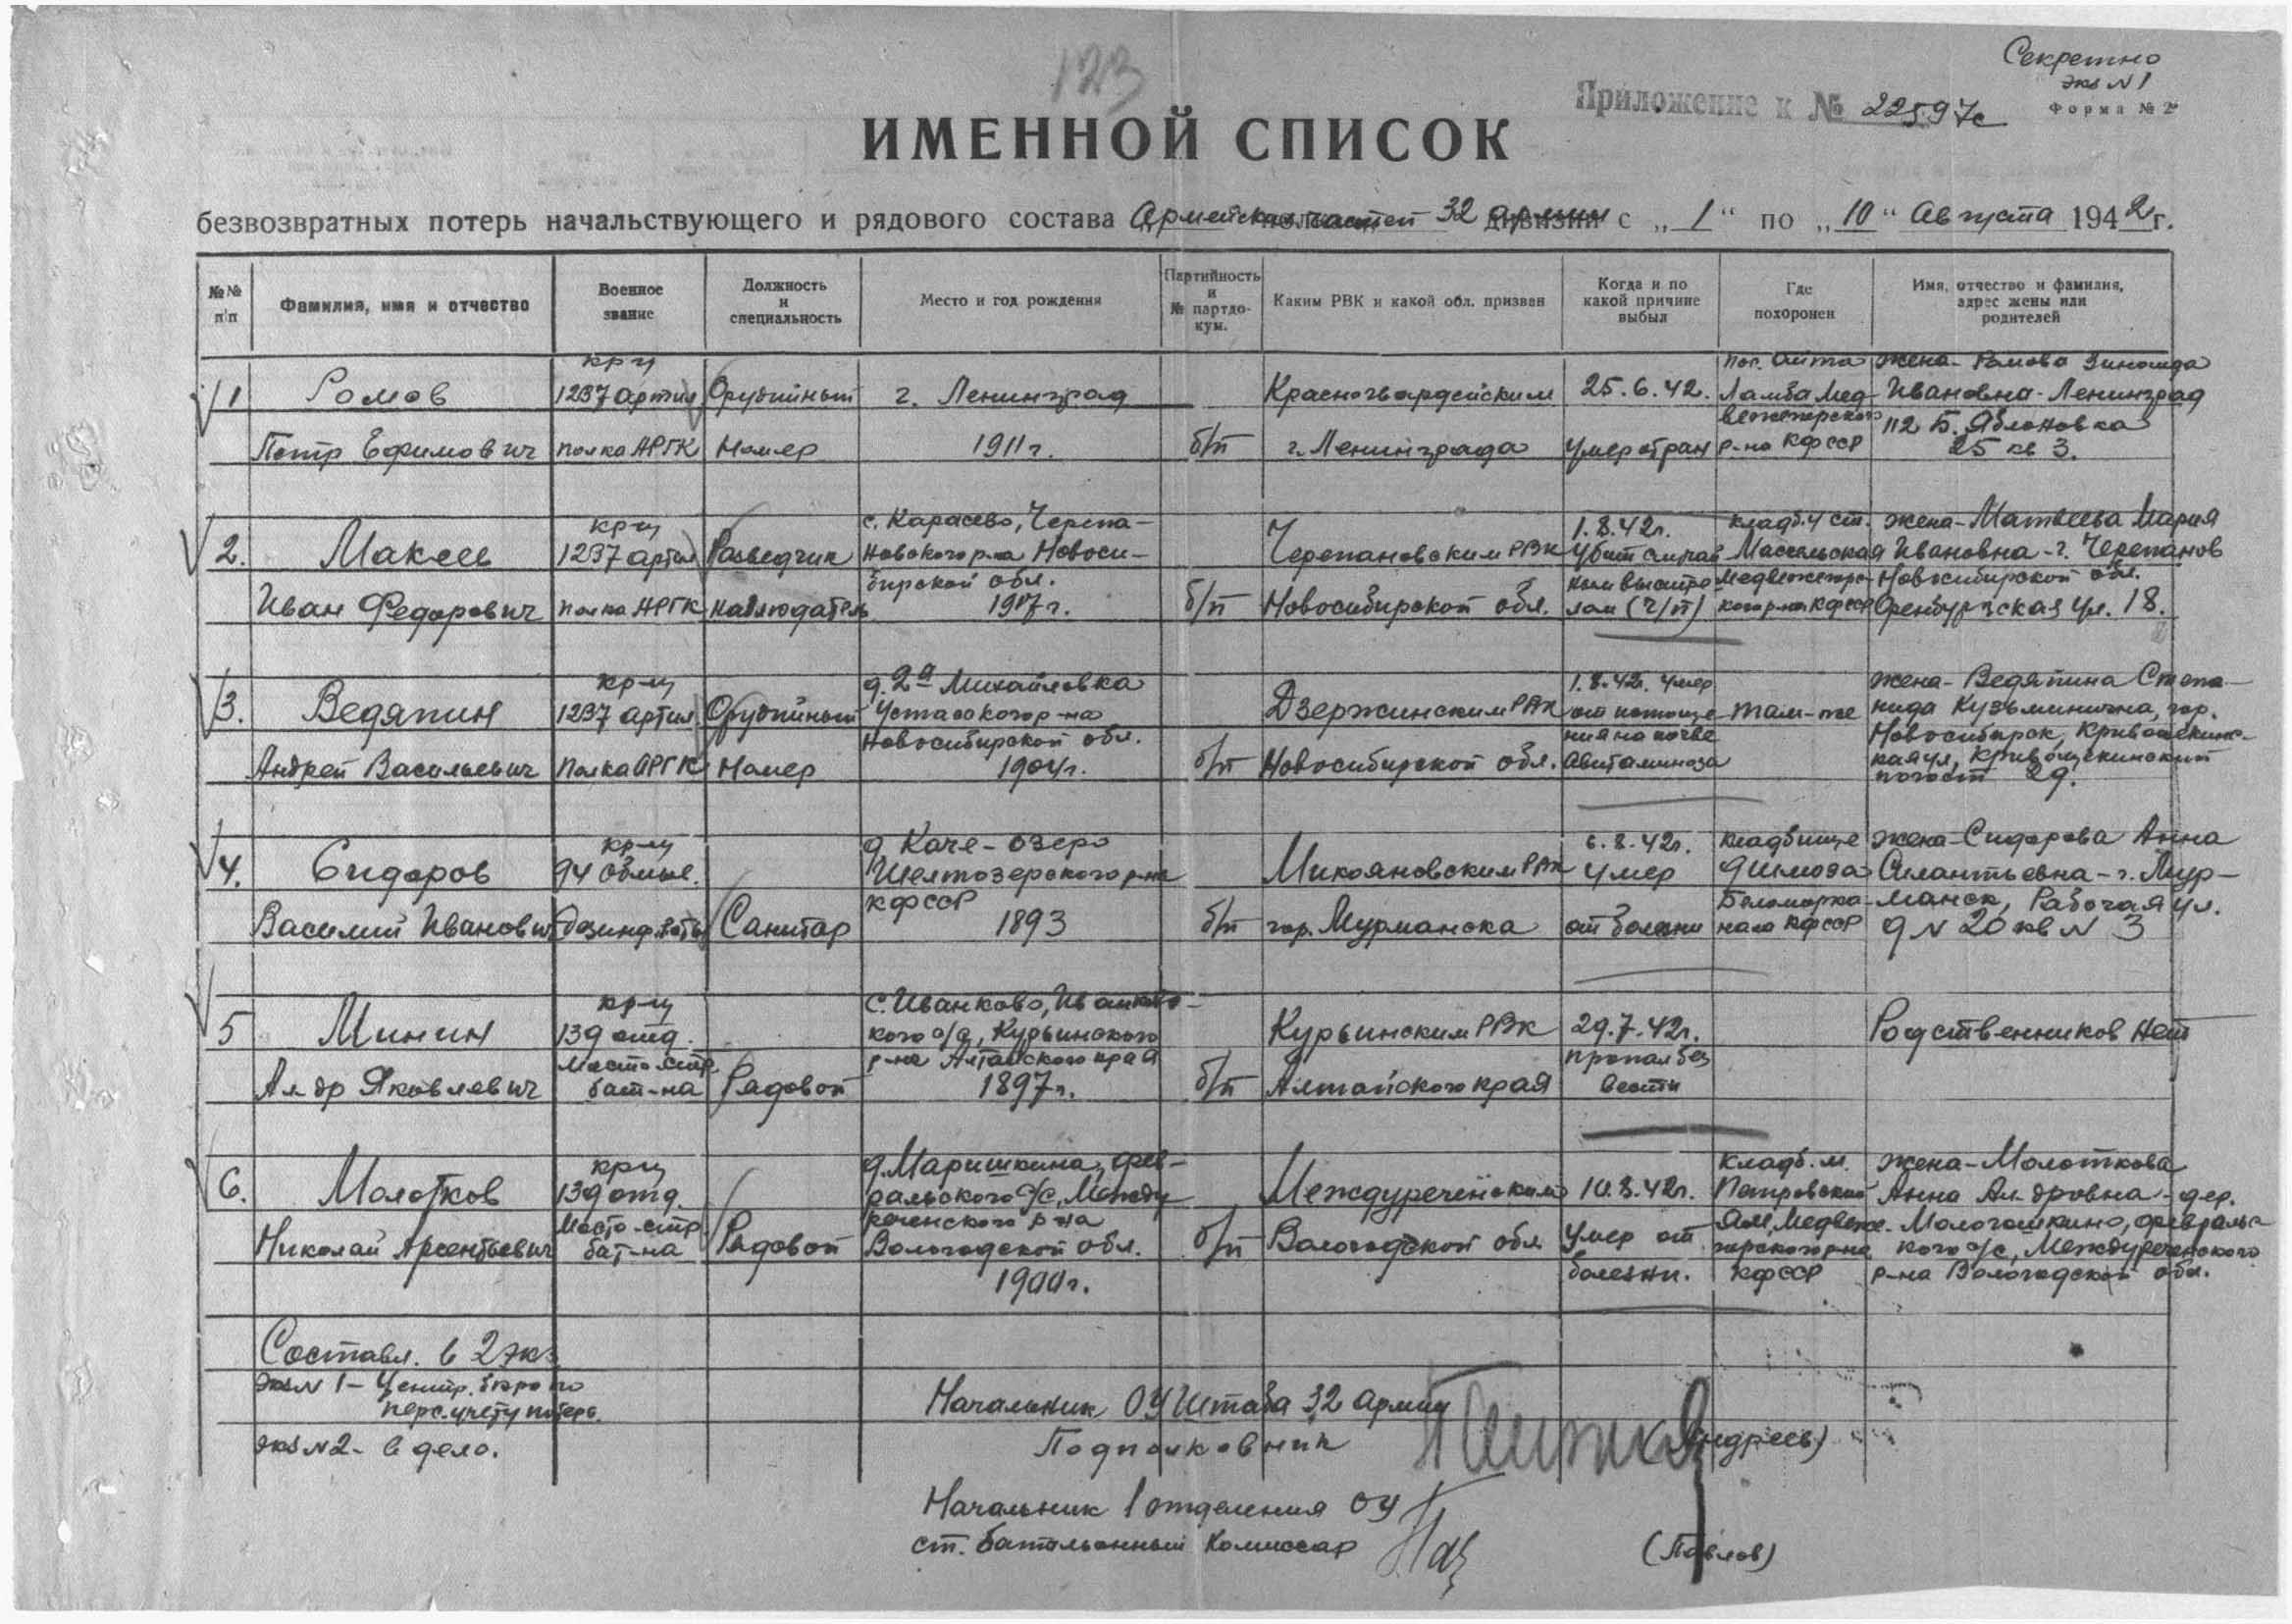 123
Секретно
экз N 1
Приложение к № 22597с
Форма № 2
ИМЕННОЙ СПИСОК
безвозвратных потерь начальствующего и рядового состава Армейских частей 32 армии с „1“ по „10“ Августа 1942 г.
№№ п/п
Фамилия, имя и отчество
Военное звание
Должность и специальность
Место и год рождения
Партийность и № партдокум.
Каким РВК и какой обл. призван
Когда и по какой причине выбыл
Где похоронен
Имя, отчество и фамилия, адрес жены или родителей
1
Ромов
Петр Ефимович
кр-ц
1237 артил.
полка АРГК
Орудийный
Номер
г. Ленинград
1911 г.
б/п
Красногвардейским
г. Ленинграда
25.6.42.
Умер от ран
Ламба Мед-
вежегорского
р-на КФССР
жена - Ромова Зинаида
Ивановна - Ленинград
112 Б. Яблоновка
25 кв 3.
2.
Макеев
Иван Федорович
кр-ц
1237 артил
полка АРГК
Разведчик
наблюдатель
с. Карасево, Черепа-
новского р-на Новоси-
бирской обл.
1917 г.
б/п
Черепановским РВК
Новосибирской обл.
1.8.42 г.
убит случай
ным выстре
лом (ч/п)
кладб. у ст.
Масельская
Медвежегорс-
кого р-на КФССР
жена - Матвеева Мария
Ивановна - г. Черепанов
Новосибирской обл.
Оренбургская ул. 18.
3.
Ведяпин
Андрей Васильевич
кр-ц
1237 артил.
полка АРГК
Орудийный
Номер
д. 2я Михайловка
Новосибирской обл.
1904 г.
б/п
Дзержинским РВК
Новосибирской обл.
1.8.42. умер
от истоще
ния на почве
Авитаминоза
там-же
жена - Ведяпина Степа-
нида Кузьминична, гор.
Новосибирск, Кривощекинс-
кая ул, Кривощекинский
29.
4.
Сидоров
Василий Иванович
кр-ц
94
Санитар
д. Каче-озеро
Шелтозерского р-на
КФССР
1893
б/п
Микояновским РВК
гор. Мурманска
6.8.42 г.
умер
от болезни
кладбище
КФССР
жена - Сидорова Анна
Силантьевна - г. Мур-
манск, Рабочая ул.
д N 20 кв N 3
5
Минин
Ал-др Яковлевич
кр-ц
139 отд.
Мосто-стр
бат-на
Рядовой
с. Иванково, Иванковс-
кого с/с, Курьинского
р-на Алтайского края
1897 г.
б/п
Курьинским РВК
Алтайского края
29.7.42 г.
пропал без
вести
Родственников нет
6.
Молотков
Николай Арсентьевич
кр-ц
139 отд.
Мосто-стр.
бат-на
Рядовой
д. Маришкина, Фев-
ральского с/с, Между
реченского р-на
Вологодской обл.
1900 г.
б/п
Междуреченским
Вологодской обл
10.8.42 г.
Умер от
болезни.
кладб. м.
Петровский
Ям, Медвеже-
горского р-на
КФССР
жена - Молоткова
Анна Ал-дровна - дер.
Мологошкино, Февральс
кого с/с, Междуреченского
р-на Вологодской обл.
Составл. в 2 экз
экз N 1 - Центр. бюро по
перс. учету потерь.
экз N 2 - в дело.
Начальник ОУ Штаба 32 Армии
Подполковник
(Андреев)
Начальник 1 отделения ОУ
ст. батальонный Комиссар
(Павлов)